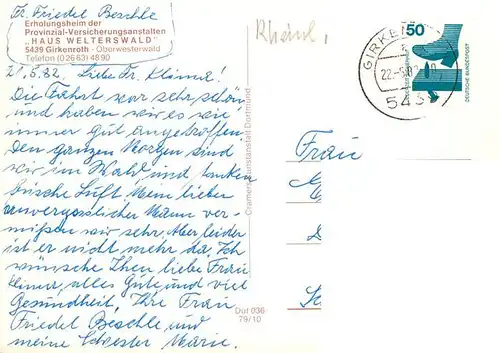 Fr. Friedel Beschle
Erholungsheim der
Provinzial-Versicherungsanstalten
„HAUS WELTERSWALD"
5439 Girkenroth - Oberwesterwald
Telefon (02663) 4890
21.5.82. Liebe Fr. Klima!
Die Fahrt war sehr schön
und haben wir es wie
immer gut angetroffen.
Den ganzen Morgen sind
wir im Wald und tanken
frische Luft. Mein lieber
unvergesslicher Mann ver-
missen wir sehr. Aber leider
ist er nicht mehr da. Ich
wünsche Ihnen liebe Frau
Klima, alles Gute und viel
Gesundheit, Ihre Frau
Friedel Beschle und
meine Schwester Marie.
Cramers Kunstanstalt Dortmund
Duf 036
79/10
Rheinl.
GIRKEN
22.-5.82
543
50
DEUTSCHE BUNDESPOST
Frau